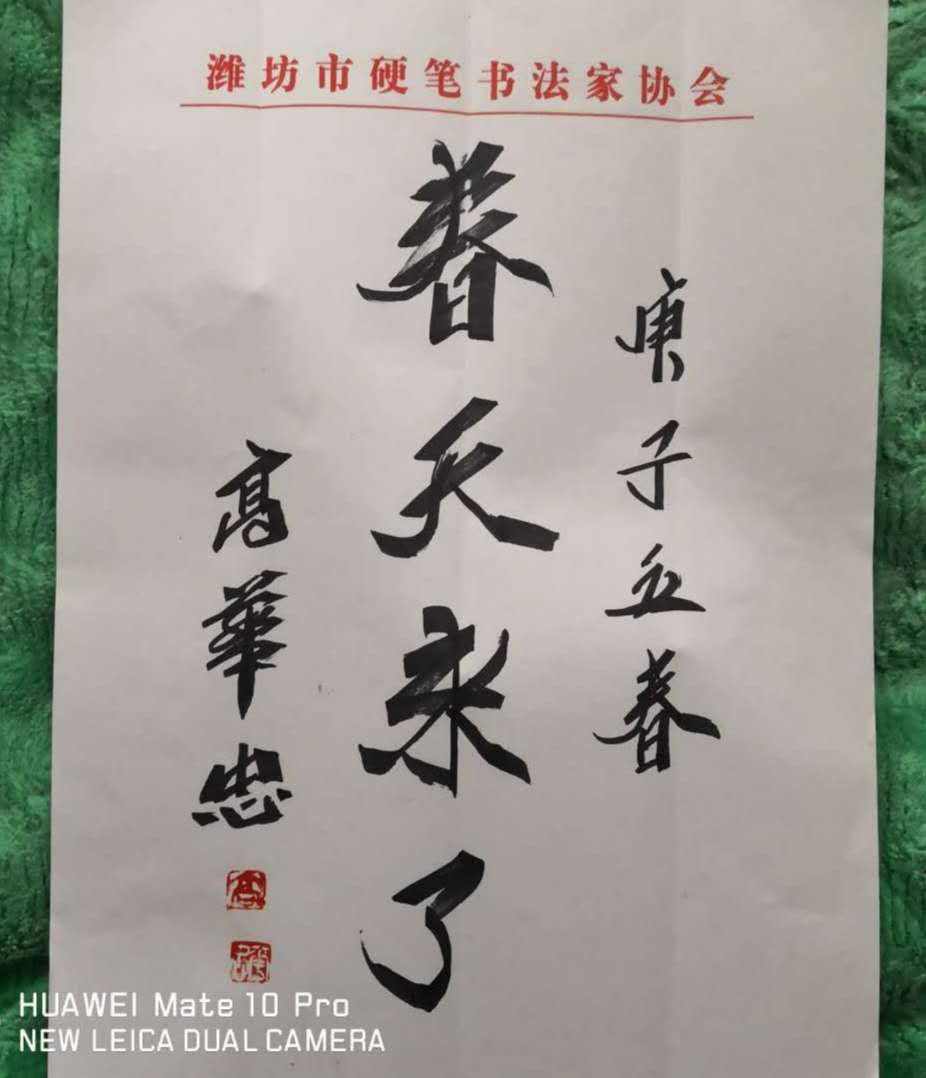 潍坊市硬笔书法家协会
庚子立春
春天来了
高華忠
HUAWEI Mate 10 Pro
NEW LEICA DUAL CAMERA